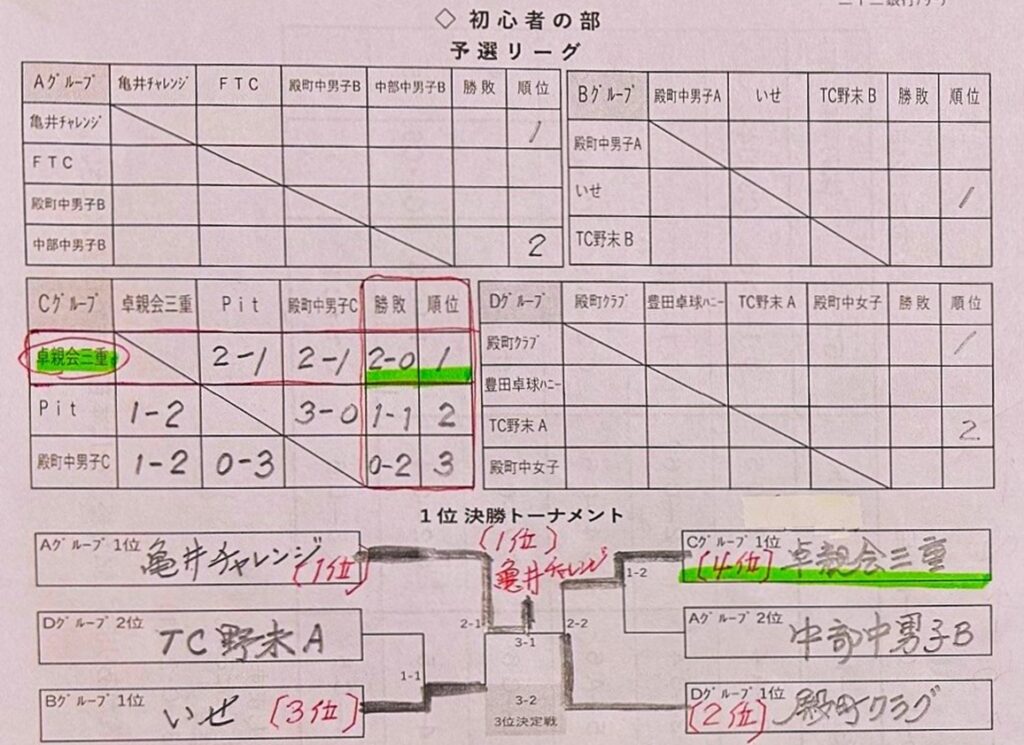 ◇ 初心者の部
予選リーグ
Aグループ 亀井チャレンジ FTC 殿町中男子B 中部中男子B 勝敗 順位
亀井チャレンジ 1
FTC
殿町中男子B
中部中男子B 2
Bグループ 殿町中男子A いせ TC野末B 勝敗 順位
殿町中男子A
いせ 1
TC野末B
Cグループ 卓親会三重 Pit 殿町中男子C 勝敗 順位
卓親会三重 2-1 2-1 2-0 1
Pit 1-2 3-0 1-1 2
殿町中男子C 1-2 0-3 0-2 3
Dグループ 殿町クラブ 豊田卓球ハニー TC野末A 殿町中女子 勝敗 順位
殿町クラブ 1
豊田卓球ハニー
TC野末A 2
殿町中女子
1位決勝トーナメント
Aグループ 1位 亀井チャレンジ (1位)
(1位)
亀井チャレンジ
Cグループ 1位 (4位) 卓親会三重
1-2
Dグループ 2位 TC野末A
2-1
3-1
2-2
Aグループ 2位 中部中男子B
1-1
Bグループ 1位 いせ (3位)
3-2
3位決定戦
Dグループ 1位 (2位) 殿町クラブ